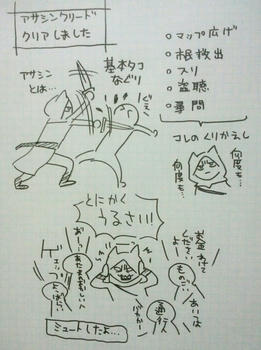 アサシンクリード
クリアしました
アサシン
とは…
基本タコ
なぐり
ぐえ
○マップ広げ
○根救出
○スリ
○盗聴
○尋問
コレのくりかえし
何度も…
何度も…
とにかく
うるさい!!
お金あげて
くださいよー
ものごい
あいつは
おーい
あたまのおかしい人
ゲェップ
よっぱらい
バカかー
通行人
ミュートしたよ…